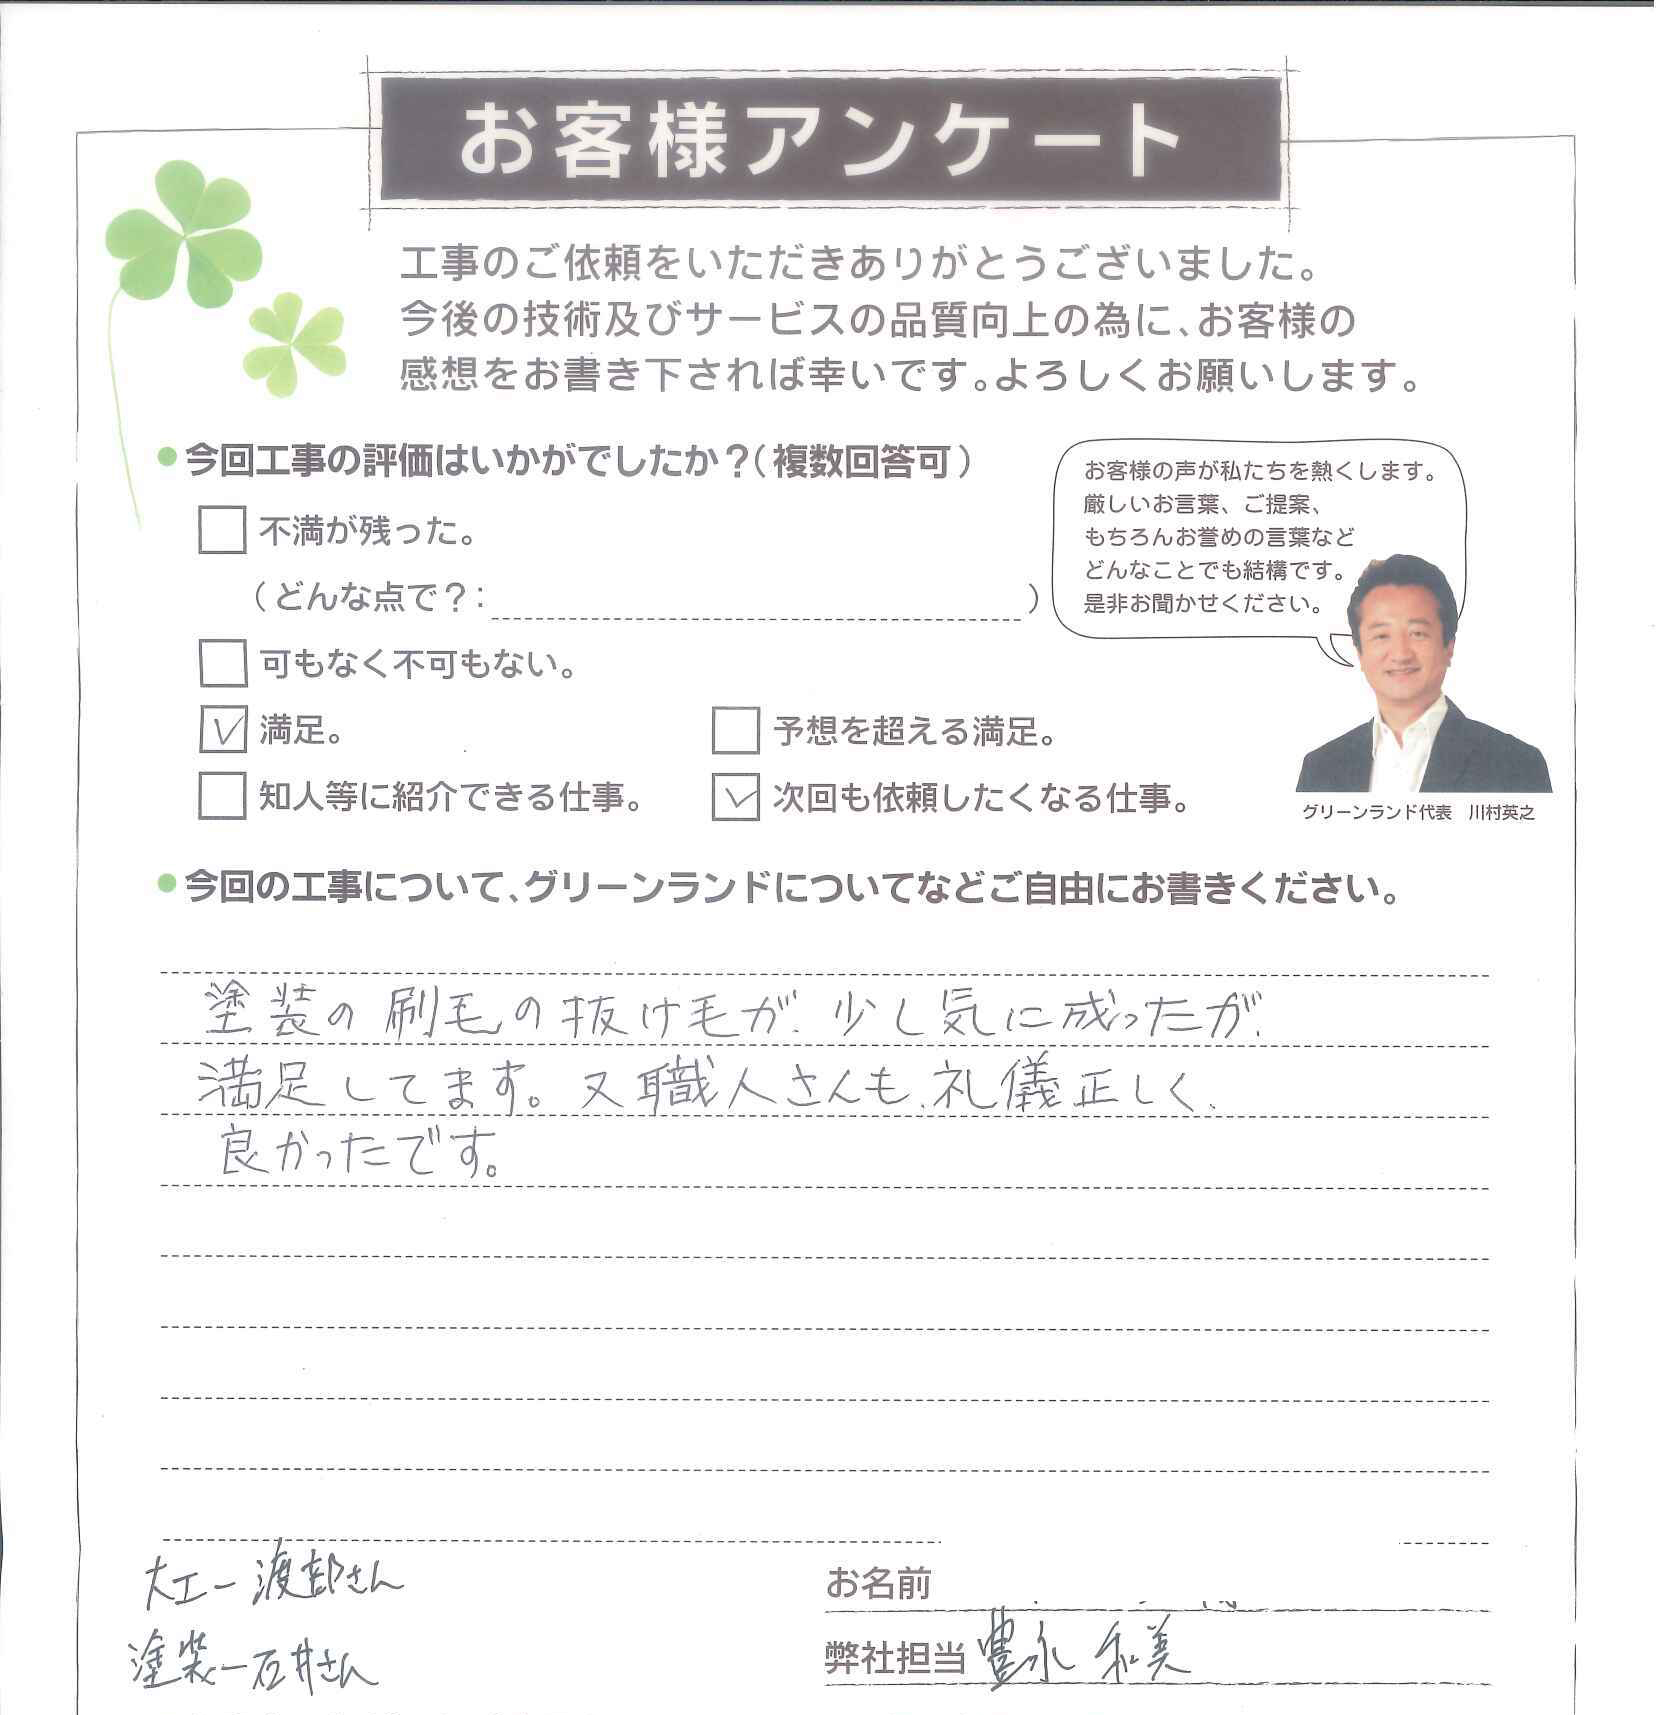 お客様アンケート
工事のご依頼をいただきありがとうございました。
今後の技術及びサービスの品質向上の為に、お客様の
感想をお書き下されば幸いです。よろしくお願いします。
今回工事の評価はいかがでしたか？（複数回答可）
不満が残った。
（どんな点で？：　）
可もなく不可もない。
満足。
予想を超える満足。
知人等に紹介できる仕事。
次回も依頼したくなる仕事。
お客様の声が私たちを熱くします。
厳しいお言葉、ご提案、
もちろんお誉めの言葉など
どんなことでも結構です。
是非お聞かせください。
グリーンランド代表　川村英之
今回の工事について、グリーンランドについてなどご自由にお書きください。
塗装の刷毛の抜け毛が、少し気に成ったが、
満足してます。又職人さんも、礼儀正しく、
良かったです。
大工ー渡部さん
塗装ー石井さん
お名前
弊社担当 豊永 和美